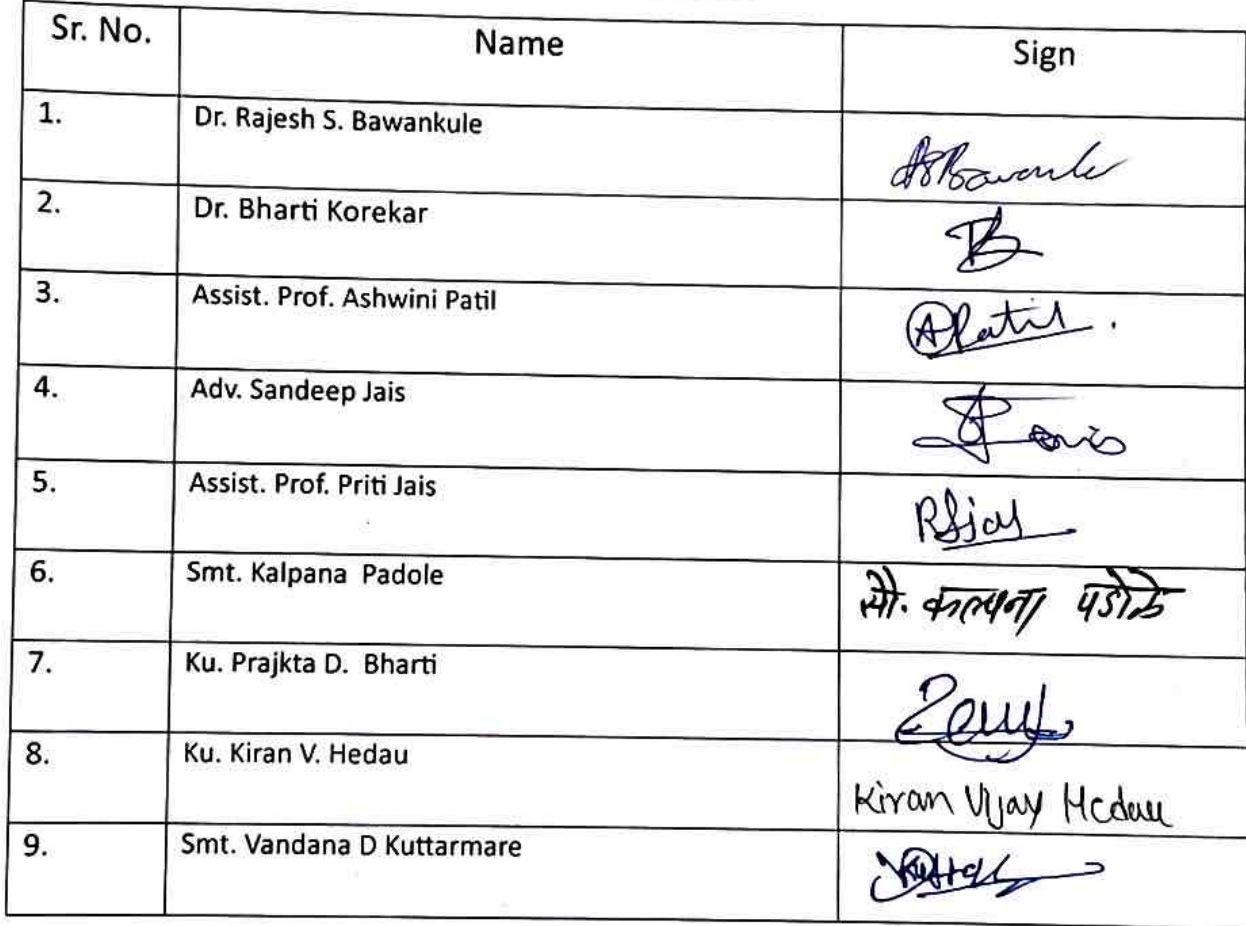 Sr. No. Name Sign
1. Dr. Rajesh S. Bawankule
2. Dr. Bharti Korekar
3. Assist. Prof. Ashwini Patil APatil.
4. Adv. Sandeep Jais
5. Assist. Prof. Priti Jais
6. Smt. Kalpana Padole सौ. कल्पना पडोळे
7. Ku. Prajkta D. Bharti
8. Ku. Kiran V. Hedau Kiran Vijay Hedau
9. Smt. Vandana D Kuttarmare